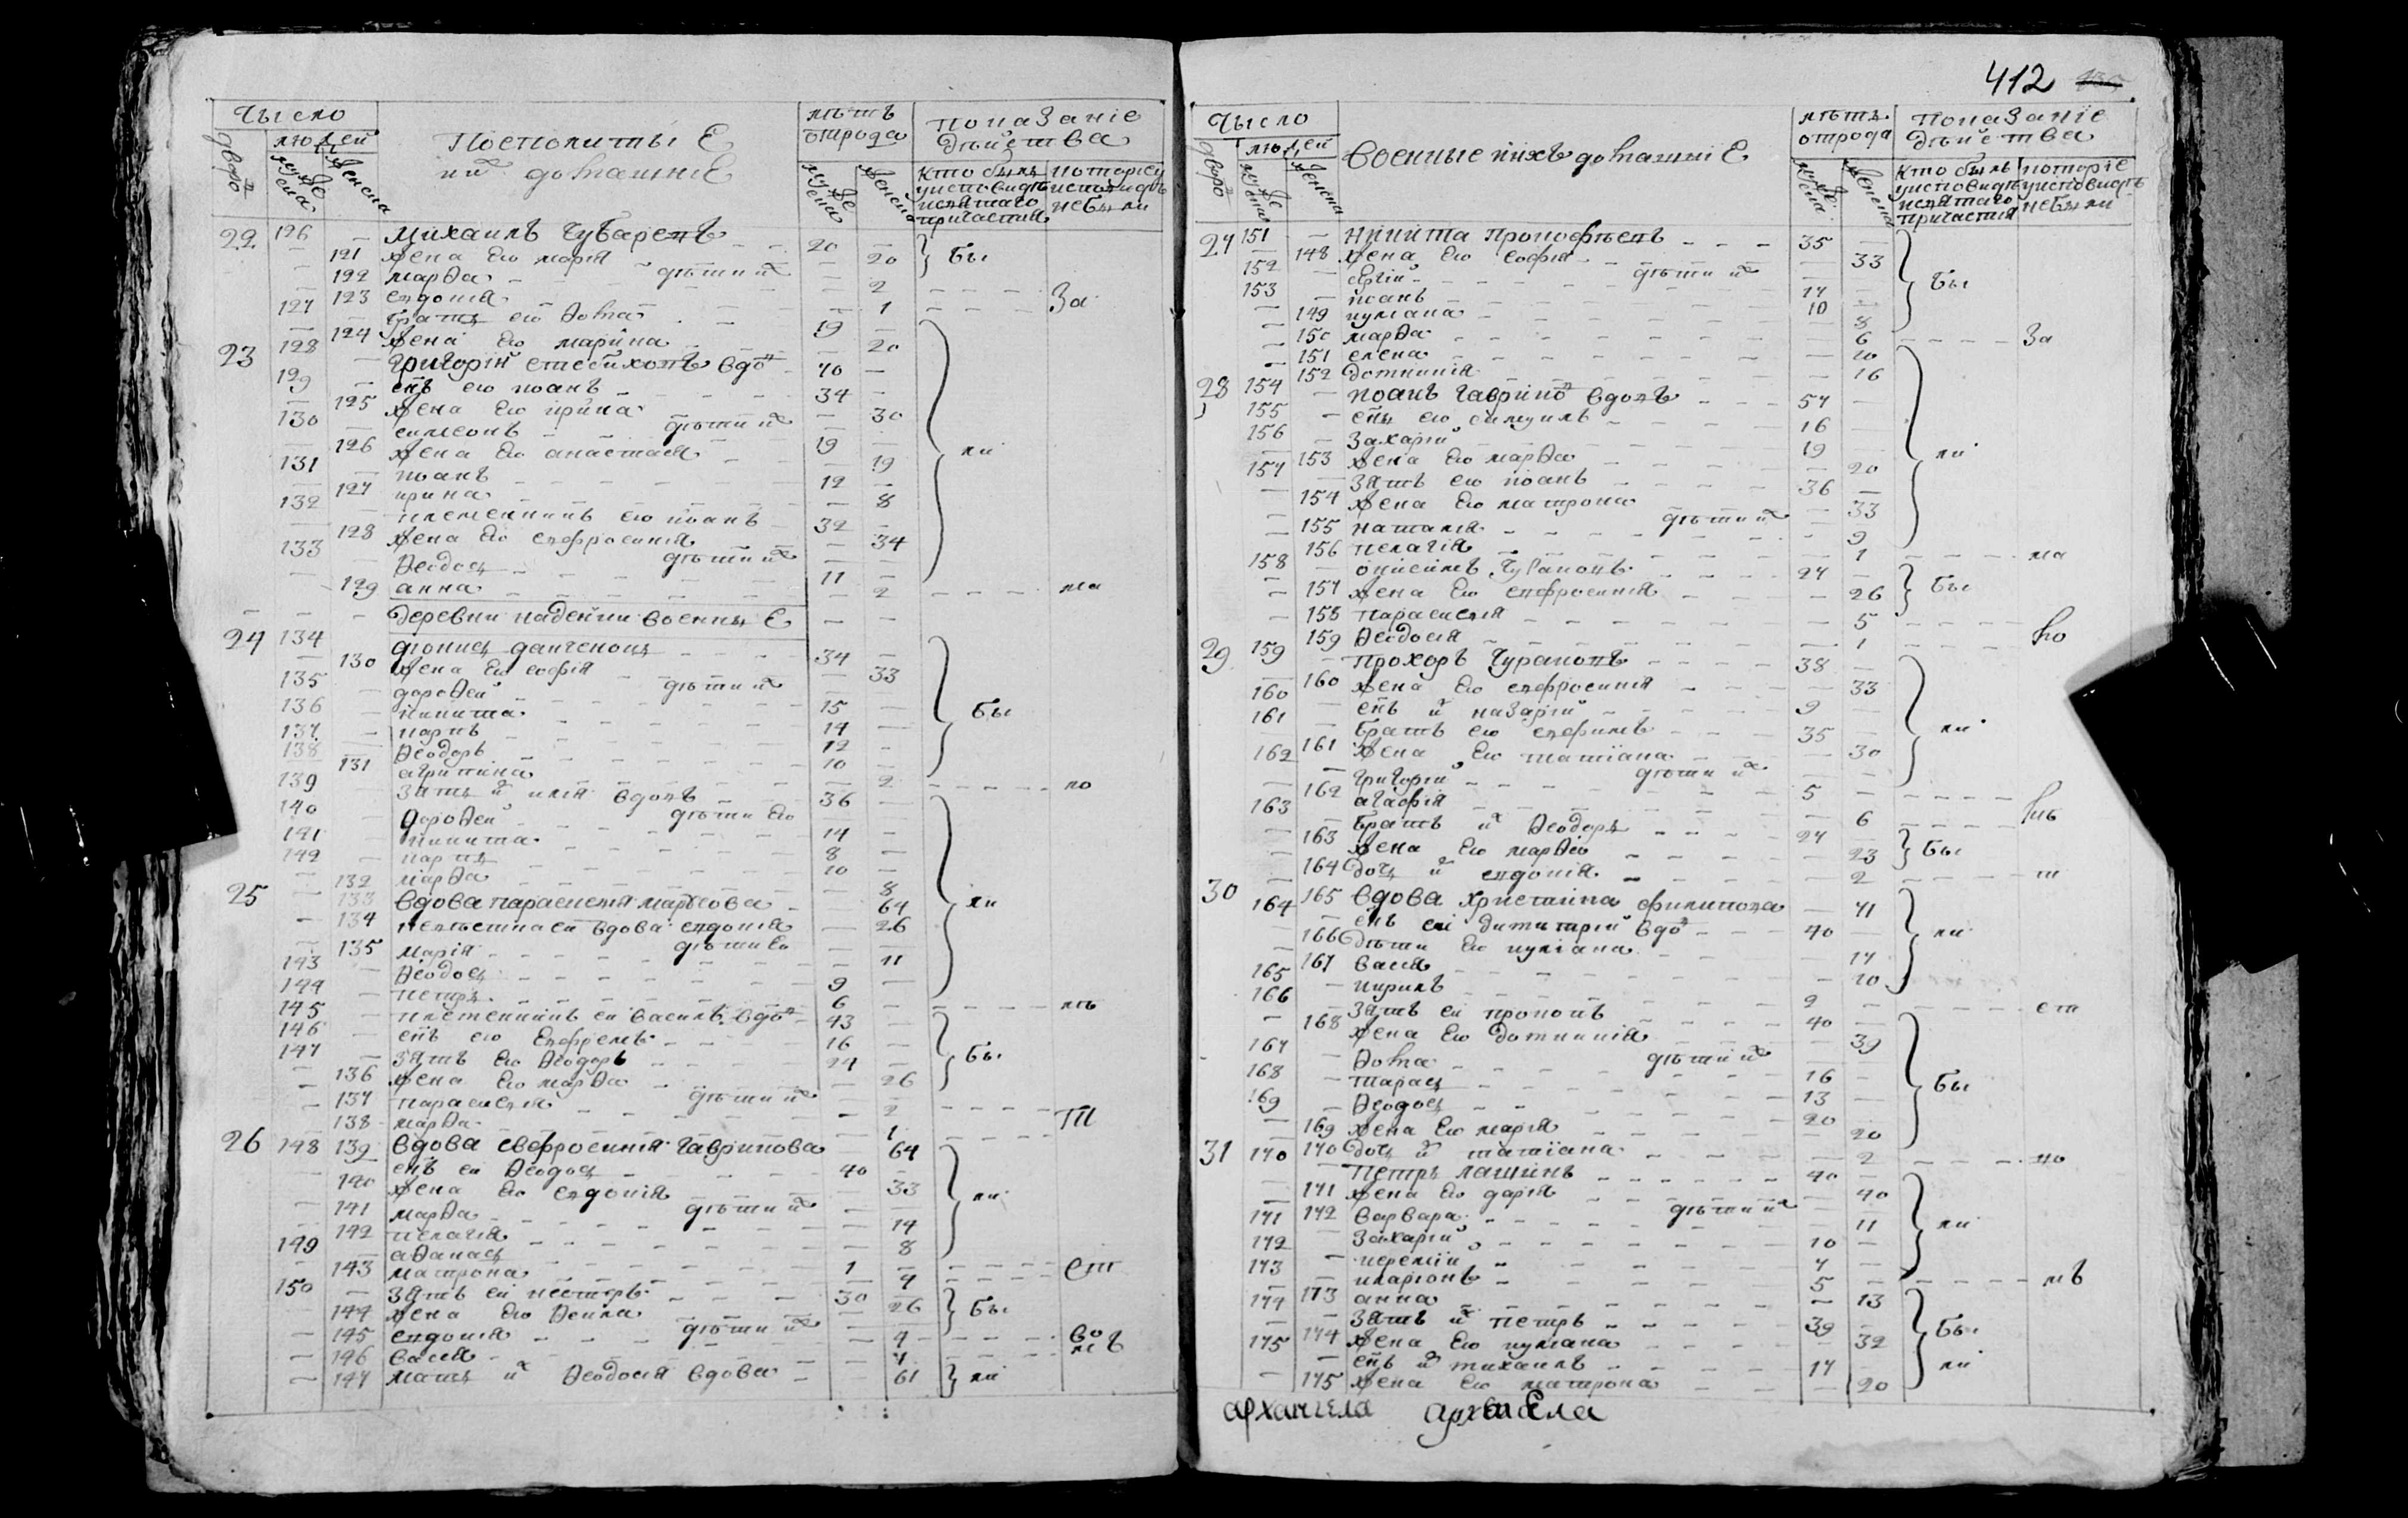 Число
людей
Посполитыи Е
ихъ домашниЕ
лѣтъ
отрода
показаніе
дѣйства
двора
мужеска
женска
мужеска
женска
кто былъ
уисповиди
исвятаго
причастия
которіе
уисповиди
небыли
22 126 – Михаилъ Чубаренъ – – 20 –
– 121 жена Его марія – дѣти ихъ – 20 бы
– 122 марѳа – – – 2
– 123 евдокія – 1 За
127 – братъ его Ѳома – 19 –
– 124 жена Его марина – 20
23 128 – Григорій вдовъ 70 –
129 – снъ его иоанъ – 34 –
– 125 жена Его ирина – 30
130 – симеонъ – дѣти ихъ 19
– 126 жена Его анастасія – 19 ли
131 – иоанъ – 12 –
– 127 ирина – 8
132 – племенникъ его иоанъ – 32 –
– 128 жена Его евфросинія – 34
133 – Ѳеодосъ – дѣти ихъ 11 –
– 129 анна – 2 ла
– – – деревни военны Е – –
24 134 дионисъ 34 –
– 130 жена Его софія – 33
135 – дороѳей – дѣти ихъ 15
136 – никита – 14 бы
137 – карпъ – 12 –
138 – Ѳеодоръ – 10 –
– 131 агрипина – 2 ло
139 – зять ихъ илія вдовъ – 36
140 – дороѳей – дѣти Его 14
141 – никита – 8
142 – карпъ – 10
– 132 марѳа – 8
25 – 133 вдова параскевія маркова – 64 ли
– 134 невѣстка ей вдова евдокія – 26
– 135 марія – дѣти Ея – 11
143 – Ѳеодосъ – 9
144 – петръ – 6 лъ
145 – племенникъ ей василь вдовъ – 43
146 – снъ его Ефремъ – 16
147 – зять Его Ѳеодоръ – 24 бы
– 136 жена Его марѳа – 26
– 137 параскевія – дѣти ихъ – 2
– 138 марѳа – 1 т
26 148 139 вдова евфросинія гаврикова – 64
снъ ей Ѳеодосъ – 40
– 140 жена Его евдокія – 33
– 141 марѳа – дѣти ихъ – 14 ли
– 142 пелагія – 8
149 – аѳанасъ – 1 –
– 143 матрона – 4 ст
150 – зять ей несторъ – 30
– 144 жена Его Ѳекла – 26 бы
– 145 евдокія – дѣти ихъ – 4 во
– 146 васса – 4 лъ
– 147 мать ихъ Ѳеодосія вдова – 61 ли
412
Число
людей
военные ихъ домашніи Е
лѣтъ
отрода
показаніе
дѣйства
двора
мужеска
женска
мужеска
женска
кто былъ
уисповиди
исвятаго
причастія
которіе
уисповидѣ
небыли
27 151 – никита – – – 35 –
– 148 жена Его софія – 33
152 – сергій – дѣти ихъ 14 бы
153 – иоанъ – 10
– 149 иуліана – 8
– 150 марѳа – 6 За
– 151 елена – 20
– 152 домникія – 16
28 154 – иоанъ гаврико вдовъ – 57
155 – снъ его самуилъ – 16
156 – захарій – 19
– 153 жена Его марѳа – 20 ли
157 – зять его иоанъ – 36 –
– 154 жена Его матрона – 33
– 155 наталія – дѣти ихъ – 9
– 156 пелагія – 1 ла
158 – онисимъ – 27
– 157 жена Его евфросинія – 26 бы
– 158 параскевія – 5
– 159 Ѳеодосія – 1 ко
29 159 – прохоръ – 38
– 160 жена Его евфросинія – 33
160 – снъ ихъ назарій – 9
161 – братъ его евфимъ – 35 ли
– 161 жена Его татіана – 30
162 – григорій – дѣти ихъ 5
– 162 агафія – 6
163 – братъ ихъ Ѳеодоръ – 24
– 163 жена Его марѳа – 23 бы
– 164 дочь ихъ евдокія – 2 т
30 – 165 вдова христина филипова – 71
164 – снъ ей димитрій вдовъ – 40 ли
– 166 дѣти Его иуліана – 14
– 167 васса – 10
165 – кирилъ – 2 ст
166 – зять ей прокопъ – 40
– 168 жена Его домникія – 39
167 – Ѳома – дѣти ихъ 16
168 – тарасъ – 13 бы
169 – Ѳеодосъ – 20
– 169 жена Его марія – 20
– 170 дочь ихъ татіана – 2 по
31 170 – петръ лашинъ – 40
– 171 жена Его дарія – 40
– 172 варвара – дѣти ихъ – 11 ли
171 – захарій – 10
172 – иеремія – 7
173 – иларіонъ – 5 лъ
– 173 анна – 13
174 – зять ихъ петръ – 39 бы
– 174 жена Его иуліана – 32
175 – снъ ихъ михаилъ – 17 ли
– 175 жена Его матрона – 20
архангела архангела